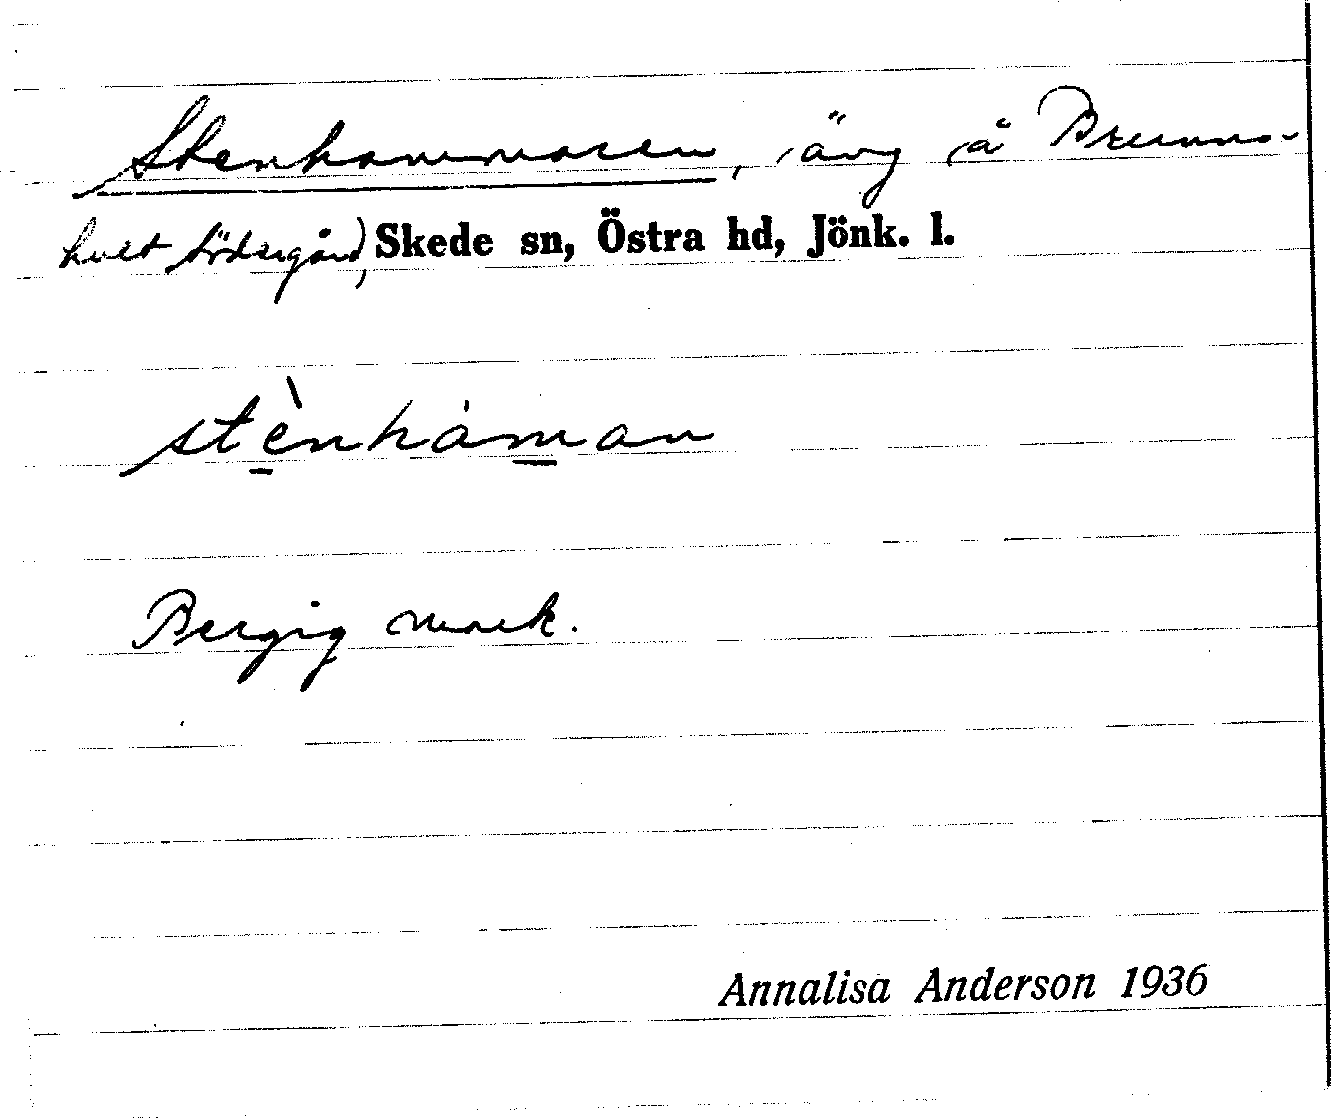 Stenhammaren, äng å Brunns-
hult södergård, Skede sn, Östra hd, Jönk. l.
stènhàman
Bergig mark.
Annalisa Anderson 1936